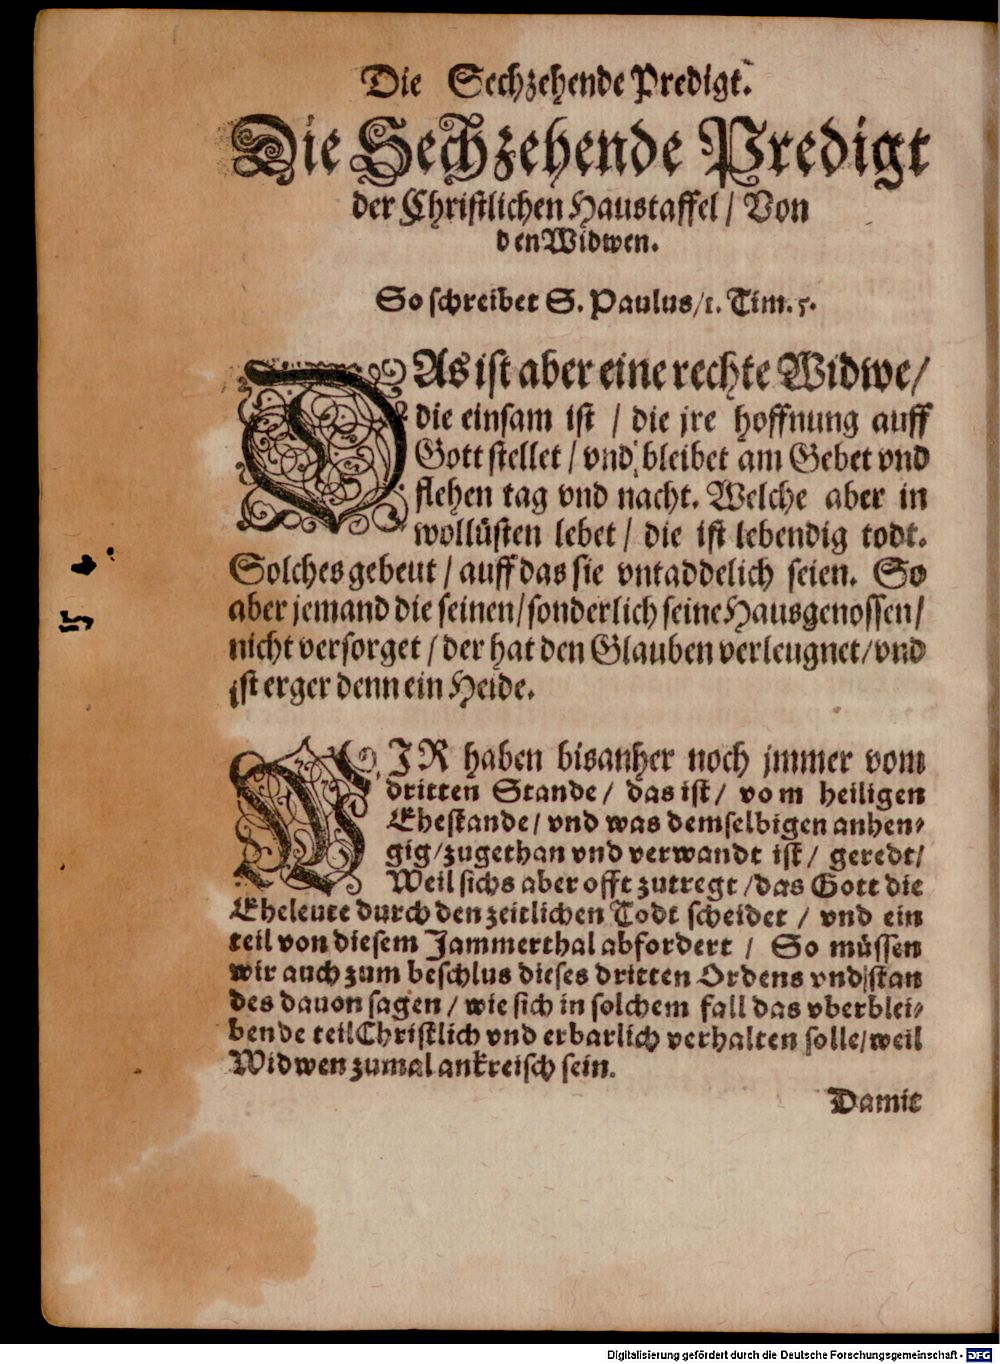 Die Sechzehende Predigt.
Die Sechzehende Predigt
der Christlichen Haustaffel / Von
den Widwen.
So schreibet S. Paulus / 1. Tim. 5.
DAs ist aber eine rechte Widwe /
die einsam ist / die jre hoffnung auff
Gott stellet / vnd bleibet am Gebet vnd
flehen tag vnd nacht. Welche aber in
wollüsten lebet / die ist lebendig todt.
Solches gebeut / auff das sie vntaddelich seien. So
aber jemand die seinen / sonderlich seine Hausgenossen /
nicht versorget / der hat den Glauben verleugnet / vnd
ist erger denn ein Heide.
WIR haben bisanher noch jmmer vom
dritten Stande / das ist / vom heiligen
Ehestande / vnd was demselbigen anhen-
gig / zugethan vnd verwandt ist / geredt /
Weil sichs aber offt zutregt / das Gott die
Eheleute durch den zeitlichen Todt scheidet / vnd ein
teil von diesem Jammerthal abfordert / So müssen
wir auch zum beschlus dieses dritten Ordens vnd stan
des dauon sagen / wie sich in solchem fall das vberblei-
bende teil Christlich vnd erbarlich verhalten solle / weil
Widwen zumal ankreisch sein.
Damit
Digitalisierung gefördert durch die Deutsche Forschungsgemeinschaft - DFG